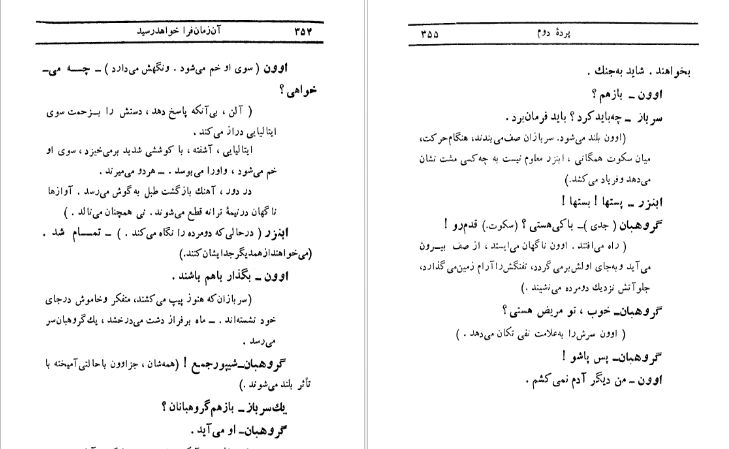 آن زمان فرا خواهد رسید ۳۵۴
اوون ( سوی او خم می‌شود . ونگهش می‌دارد ) ــ چــه می‌ــ
خواهی؟
( آلن ، بی‌آنکه پاسخ دهد ، دستش را بــزحمت سوی
ایتالیایی دراز می‌کند .
ایتالیایی ، آشفته ، با کوششی شدید برمی‌خیزد ، سوی او
خم می‌شود ، واورا می‌بوسد . ــ هردو می‌میرند .
در دور ، آهنك بازگشت طبل به‌گوش می‌رسد . آوازها
ناگهان درنیمهٔ ترانه قطع می‌شوند . نی همچنان می‌نالد . )
ابنزر ( درحالی‌که دومرده را نگاه می‌کند . ) ــ تمــام شد .
(می‌خواهند ازهمدیگر جدایشان کنند.)
اوون ــ بگذار باهم باشند .
(سربازان‌که هنوز پیپ می‌کشند، متفکر وخاموش درجای
خود نشسته‌اند . ــ ماه برفراز دشت می‌درخشد ، یك‌گروهبان‌سر
می‌رسد .
گروهبان‌ــ شیپور جمع ! (همه‌شان ، جز اوون باحالتی‌آمیخته با
تأثر بلند می‌شوند .)
یك‌سرباز ــ بازهم‌گروهبانان ؟
گروهبان‌ــ او می‌آید .
پردهٔ دوم ۳۵۵
بخواهند . شاید به‌جنك .
اوون ــ بازهم ؟
سرباز ــ چه‌بایدکرد ؟ باید فرمان‌برد .
(اوون بلند می‌شود. سربازان صف‌می‌بندند، هنگام‌حرکت،
میان سکوت همگانی ، ابنزر معلوم نیست به چه‌کسی مشت نشان
می‌دهد وفریاد می‌کشد.)
ابنزر ــ پستها ! پستها !
گروهبان (جدی )ــ باکی‌هستی ؟ (سکوت.) قدم‌رو !
( راه می‌افتند . اوون ناگهان می‌ایستد ، از صف بیــرون
می‌آید وبه‌جای اولش‌برمی‌گردد، تفنگش‌را آرام زمین‌می‌گذارد،
جلوآتش نزدیك دومرده می‌نشیند . )
گروهبان‌ــ خوب ، تو مریض هستی ؟
( اوون سرش‌را به‌علامت نفی تکان می‌دهد . )
گروهبان‌ــ پس پاشو !
اوون ــ من دیگر آدم نمی‌کشم .